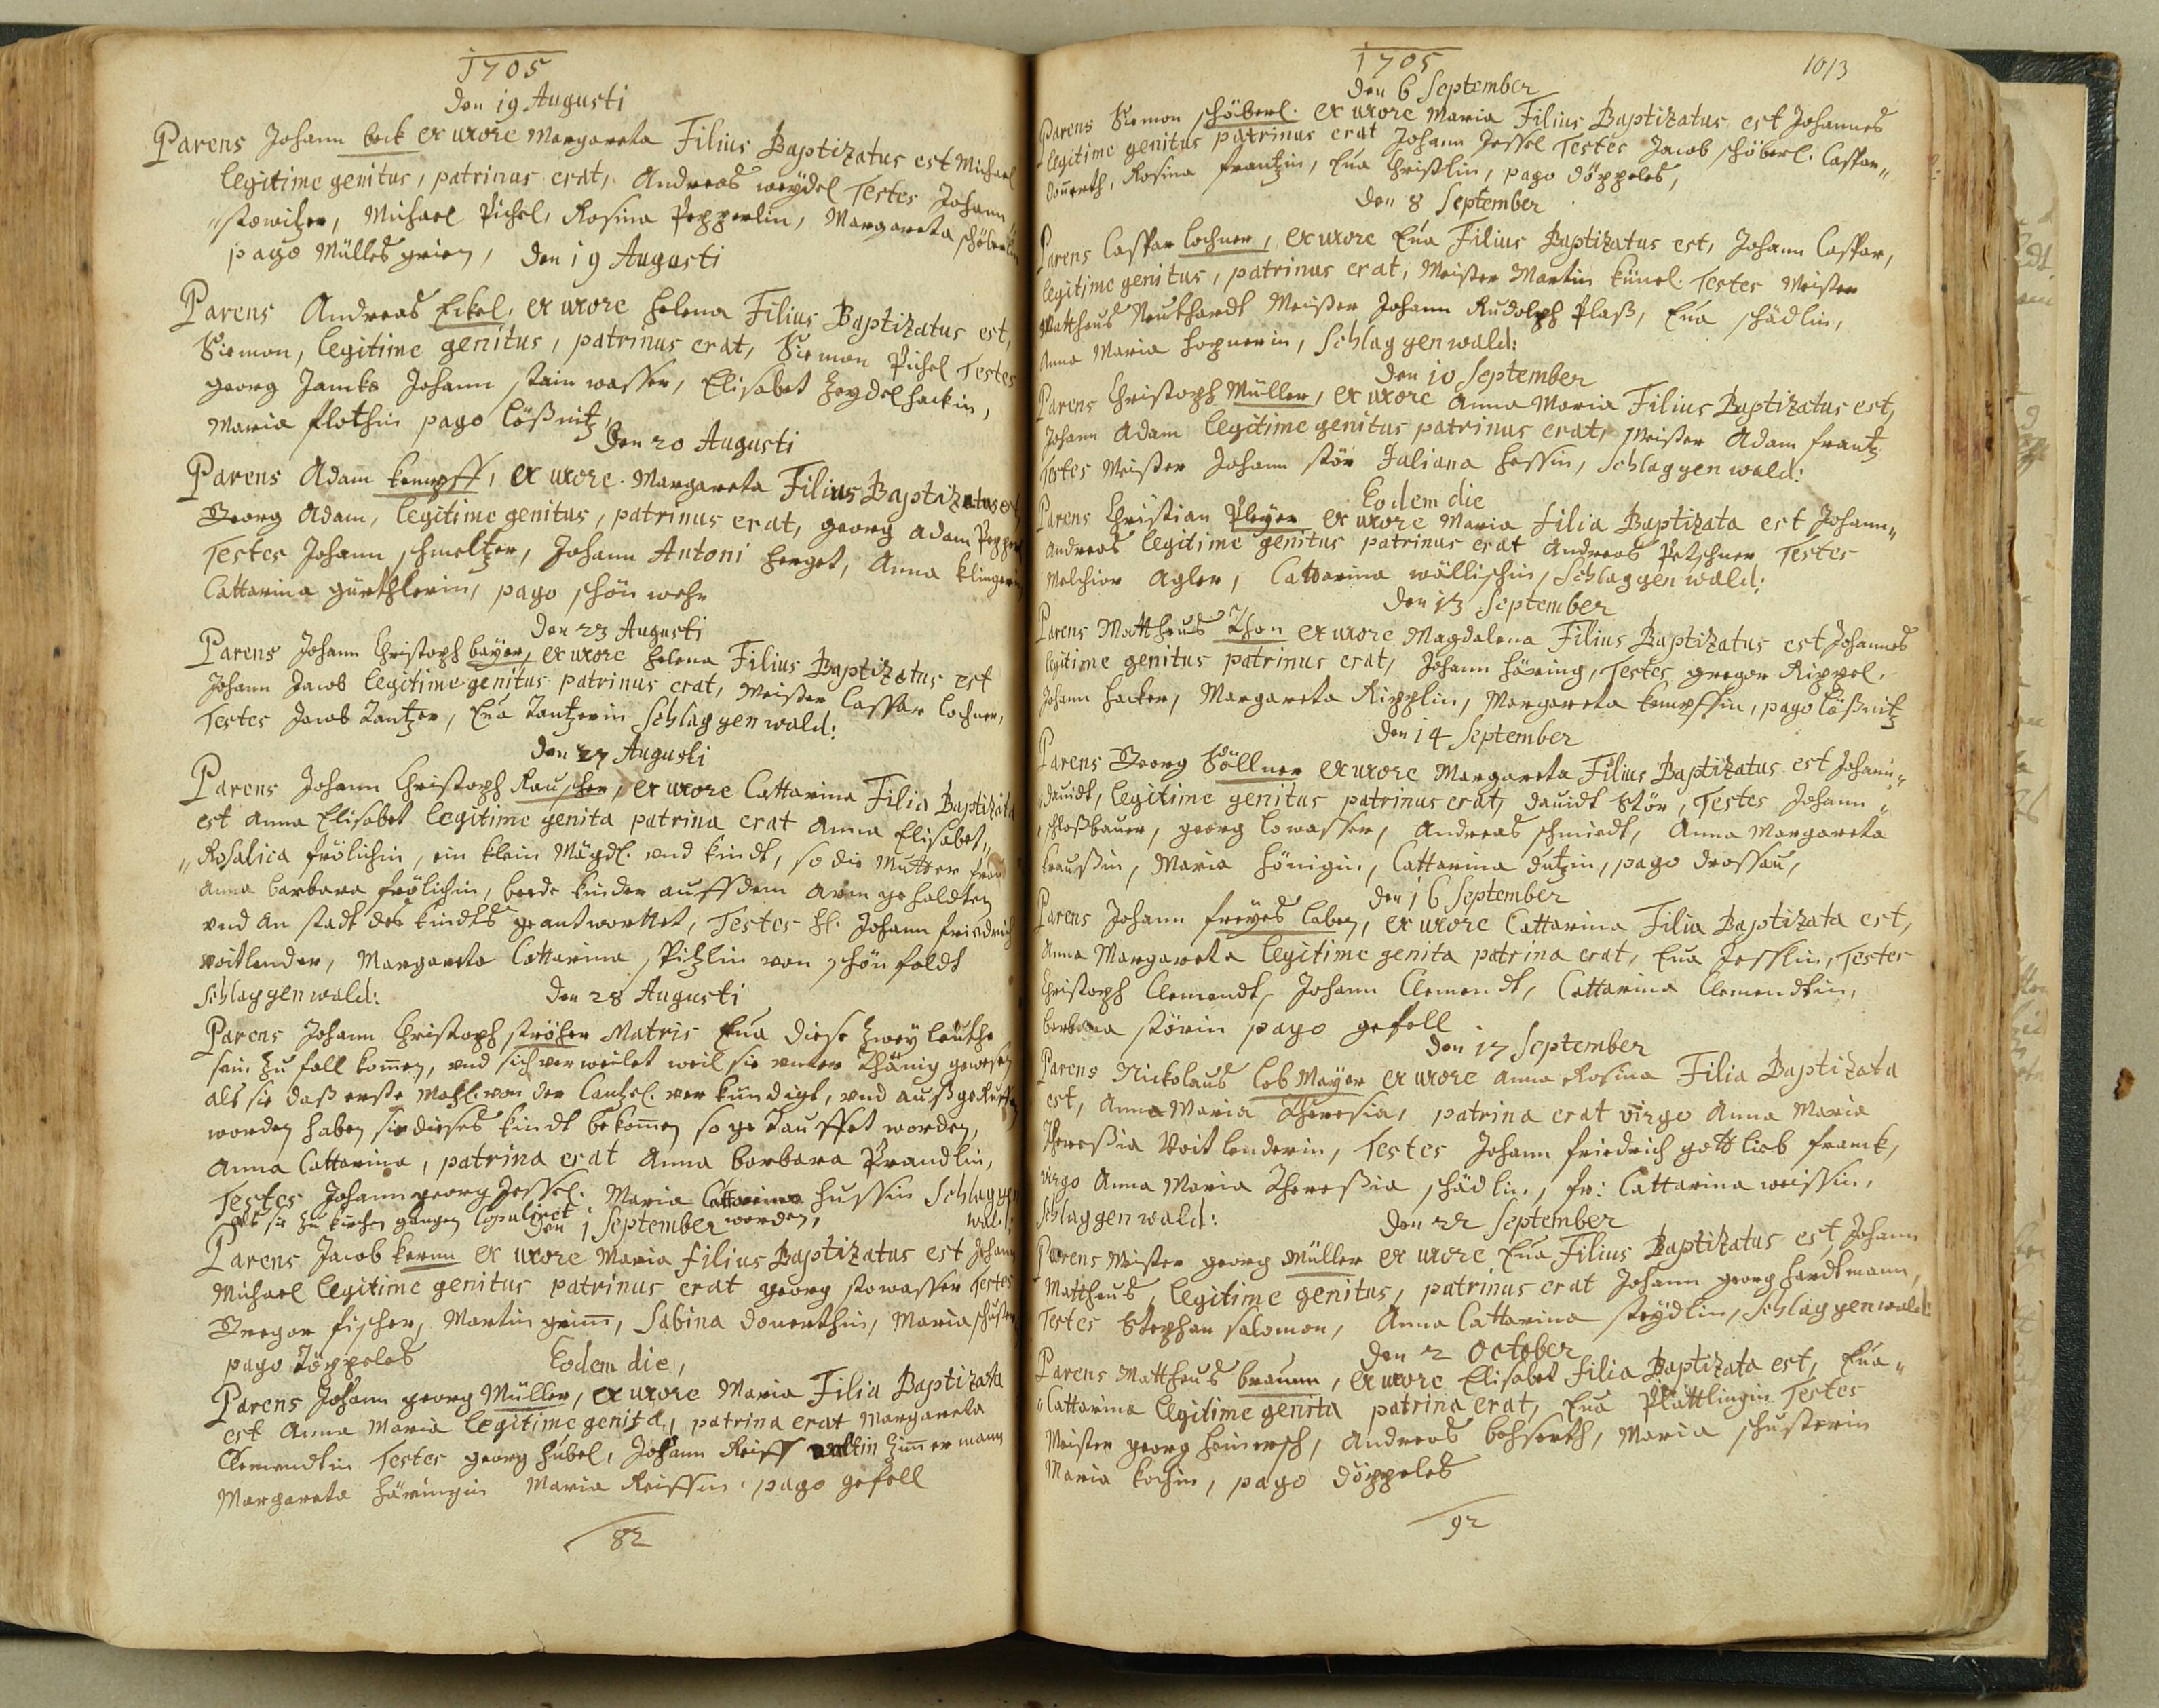 1705
Den 19 Augusti
Parens Johann beck ex uxore Margareta Filius Baptizatus est Michael
legitime genitus, patrinus erat, Andreas weydel Testes Johann
stowitzer, Michael Pichel, Rosina Pepperlin, Margareta schöberlin
pago Müllesgrien, Den 19 Augusti
Parens Andreas Eckel, ex uxore Helena Filius Baptizatus est,
Siemon, legitime genitus, patrinus erat, Siemon Pichel Testes
georg Jancke Johann stainwasser, Elisabet Heydelhackin,
Maria flothin pago lößnitz,
Den 20 Augusti
Parens Adam kempff, ex uxore Margareta Filius Baptizatus est
Georg Adam, legitime genitus, patrinus erat, georg adam Pepper
Testes Johann schmeltzer, Johann Antoni Herget, Anna klingerin
Cattarina gürthlerin, pago schön wehr
Den 23 Augusti
Parens Johann Christoph bayer, ex uxore Helena Filius Baptizatus est
Johann Jacob legitime genitus patrinus erat, Meister Casspar lochner,
Testes Jacob Tantzer, Eua Tantzerin Schlaggenwald:
Den 27 Augusti
Parens Johann Christoph Rauscher, ex uxore Cattarina Filia Baptizata
est Anna Elisabet legitime genita patrina erat Anna Elisabet
Rosalica frölichin, ein klein Mägdl. und kindt, so die Mutter frau
anna barbara frölichin, beede kinder auff dem arm gehaldten
und an stadt des kindts geantworttet, Testes H: Johann friedrich
voitlender, Margareta Cattarina Pitzlin von schönfeldt
Schlaggenwald: Den 28 Augusti
Parens Johann Christoph ströher Matris Eua diese zwey leuthe
sein zu fall komen, und sich verweilet weil sie gewesen
als sie daß erste Mahl. von der Cantzel. verkündigt, und außgeruffen
worden haben sie dieses kindt bekomen so getauffet worden,
Anna Cattarina, patrina erat Anna barbara Prandlin,
Testes Johann georg Jessel. Maria Cattarina Hussin Schlaggen
als sie zu kirchen gangen Copuliret worden, wald:
Den 1 September
Parens Jacob kermn ex uxore Maria filius Baptizatus est Johann
Michael legitime genitus patrinus erat georg stowasser Testes
Gregor fischer, Martin grim, Sabina donerthin, Maria schuster
pago Töppeles Eodem die,
Parens Johann georg Müller, ex uxore Maria Filia Baptizata
est Anna Maria legitime genita, patrina erat Margareta
Clementin Testes georg hübel, Johann Reiff zimermann
Margareta Häringin Maria Reiffin, pago gefell
82
1705
1013
Den 6 September
Parens Siemon schöberl. ex uxore Maria Filius Baptizatus est Johannes
legitime genitus patrinus erat Johann Jessel Testes Jacob schöberl. Casspar
donerth, Rosina frantzin, Eua Christlin, pago Döppeles,
Den 8 September
Parens Casspar lochner, ex uxore Eua Filius Baptizatus est, Johann Casspar,
legitime genitus, patrinus erat, Meister Martin künel. Testes Meister
Mattheus Neukhardt Meister Johann Rudolph Plaß, Eua schädlin,
Anna Maria hoznerin, Schlaggenwald:
Den 10 September
Parens Christoph Müller, ex uxore Anna Maria Filius Baptizatus est,
Johann Adam legitime genitus patrinus erat, Meister Adam frantz
Testes Meister Johann stör Juliana Hessin, Schlaggenwald:
Eodem die
Parens Christian Pleyer ex uxore Maria filia Baptizata est Johann
andreas legitime genitus patrinus erat Andreas Petschner Testes
Melchior Agler, Cattarina wällischin, Schlaggenwald:
Den 13 September
Parens Mattheus Thon ex uxore Magdalena Filius Baptizatus est Johannes
legitime genitus patrinus erat, Johann Häring, Testes gregor Rippel.
Johann hacker, Margareta Ripplin, Margareta kempffin, pago lößnitz
Den 14 September
Parens Georg Söllner ex uxore Margareta Filius Baptizatus est Johann
dauidt, legitime genitus patrinus erat, dauidt Stör, Testes Johann
schloßbauer, georg lowasser, Andreas schmiedt, Anna Margareta
kraußin, Maria Hönigin, Cattarina dutzin, pago drossau,
Den 16 September
Parens Johann freyes leben, ex uxore Cattarina Filia Baptizata est,
Anna Margareta legitime genita patrina erat, Eua Jesslin, Testes
Christoph Clemendt, Johann Clemendt, Cattarina Clemendtin,
barbara störin pago gefell
Den 17 September
Parens Nickolaus lob Mayer ex uxore Anna Rosina Filia Baptizata
est, Anna Maria Theresia, patrina erat virgo Anna Maria
Theresia Voitlenderin, Testes Johann friedrich gottlieb franck,
virgo Anna Maria Thereßia schädlin, fr: Cattarina weissin,
Schlaggenwald: Den 22 September
Parens Meister georg Müller ex uxore Eua Filius Baptizatus est Johann
Mattheus, legitime genitus, patrinus erat Johann georg hardtmann,
Testes Stephan salomon, Anna Cattarina steydlin, Schlaggenwald:
Den 2 October
Parens Mattheus braunn, ex uxore Elisabet filia Baptizata est, Eua
Cattarina legitime genita patrina erat, Eua Plattlingin Testes
Meister georg heinersch, Andreas bohserth, Maria schusterin
Maria kochin, pago döppeles
92